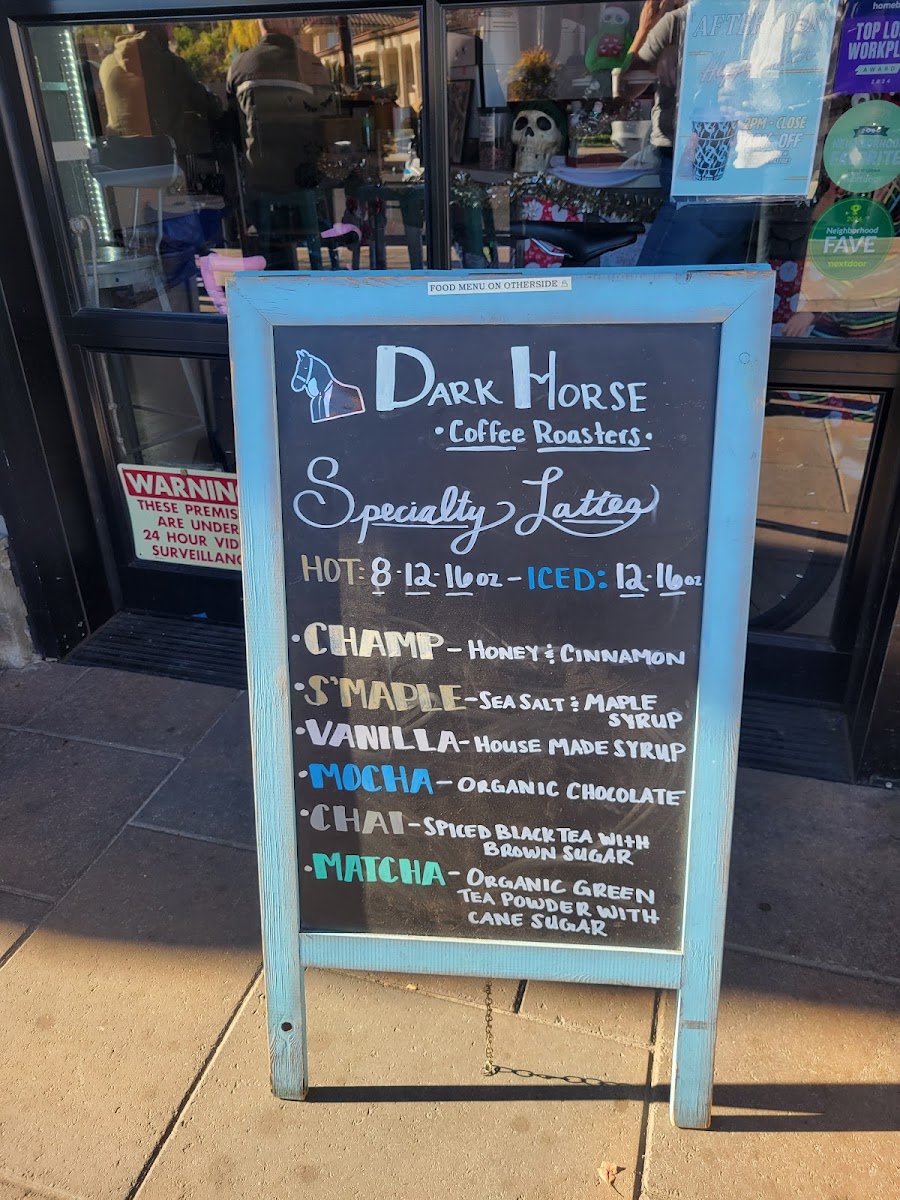 AFTERNOON
2PM - CLOSE
OFF
TOP LO
WORKPL
AWARD
2024
FAVORITE
Neighborhood
FAVE
nextdoor
FOOD MENU ON OTHERSIDE
DARK HORSE
• Coffee Roasters •
Specialty Lattes
HOT: 8 · 12 · 16oz – ICED: 12 · 16oz
• CHAMP – HONEY & CINNAMON
• S'MAPLE – SEA SALT & MAPLE
SYRUP
• VANILLA – HOUSE MADE SYRUP
• MOCHA – ORGANIC CHOCOLATE
• CHAI – SPICED BLACK TEA WITH
BROWN SUGAR
• MATCHA – ORGANIC GREEN
TEA POWDER WITH
CANE SUGAR
WARNIN
THESE PREMIS
ARE UNDER
24 HOUR VID
SURVEILLANC